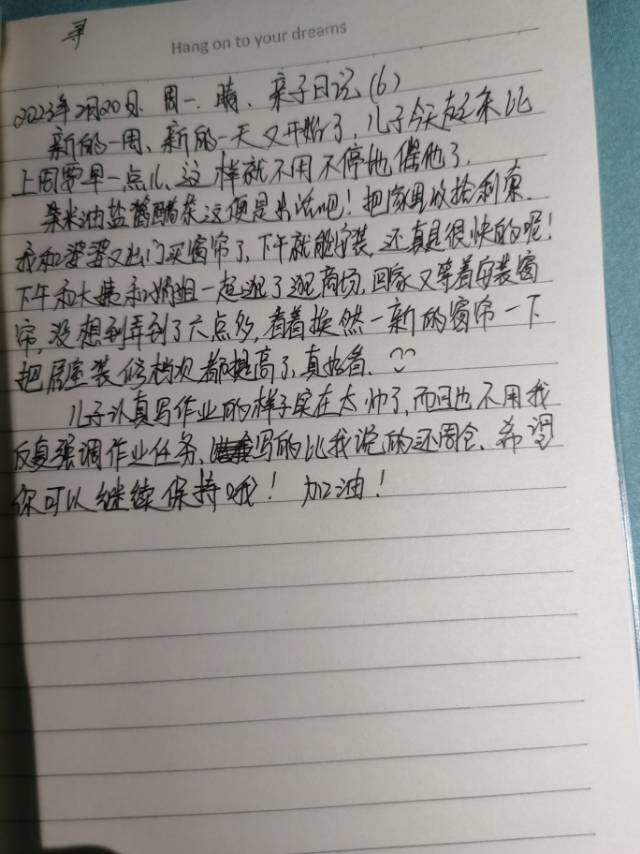 寻
Hang on to your dreams
2023年2月20日. 周一. 晴. 亲子日记(6)
新的一周、新的一天又开始了, 儿子今天起来比
上周要早一点儿、这样就不用不停地催他了.
柴米油盐酱醋茶这便是生活吧! 把家里收拾利索.
我和婆婆又出门买窗帘了, 下午就能安装, 还真是很快的呢!
下午和大姨和姐一起逛了逛商场, 回家又等着安装窗
帘, 没想到弄到了六点多, 看着焕然一新的窗帘一下
把居室装修档次都提高了, 真好看.
儿子认真写作业的样子实在太帅了, 而且也不用我
反复强调作业任务、写的比我说的还周全、希望
你可以继续保持哦! 加油!